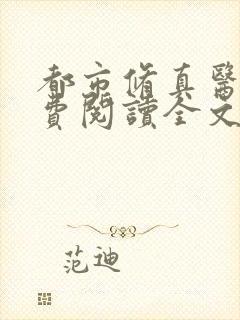 都市脩真醫
費閱讀全文
范迪